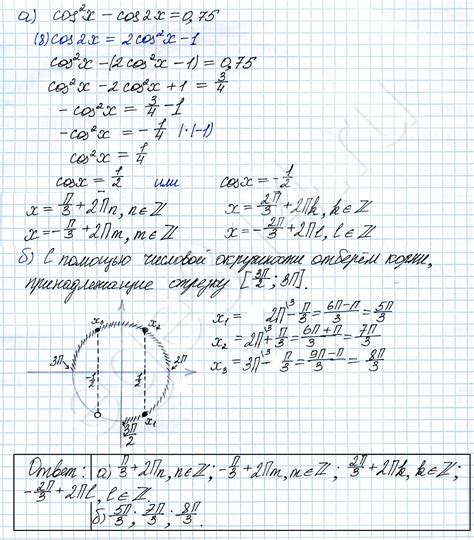 а) cos²x - cos2x = 0,75
(8) cos2x = 2cos²x - 1
cos²x - (2cos²x - 1) = 0,75
cos²x - 2cos²x + 1 = 3/4
- cos²x = 3/4 - 1
- cos²x = - 1/4 |·(-1)
cos²x = 1/4
cosx = 1/2 или cosx = - 1/2
x = π/3 + 2πn, n∈ℤ x = 2π/3 + 2πk, k∈ℤ
x = - π/3 + 2πm, m∈ℤ x = - 2π/3 + 2πl, l∈ℤ
б) С помощью числовой окружности отберём корни,
принадлежащие отрезку [3π/2; 3π].
x₁ = 2π\3 - π/3 = 6π-π/3 = 5π/3
x₂ = 2π\3 + π/3 = 6π+π/3 = 7π/3
x₃ = 3π\3 - π/3 = 9π-π/3 = 8π/3
x₃ x₂
3π -1/2 1/2 2π
x₁
3π/2
Ответ: а) π/3 + 2πn, n∈ℤ; - π/3 + 2πm, m∈ℤ; 2π/3 + 2πk, k∈ℤ;
- 2π/3 + 2πl, l∈ℤ.
б) 5π/3; 7π/3; 8π/3.